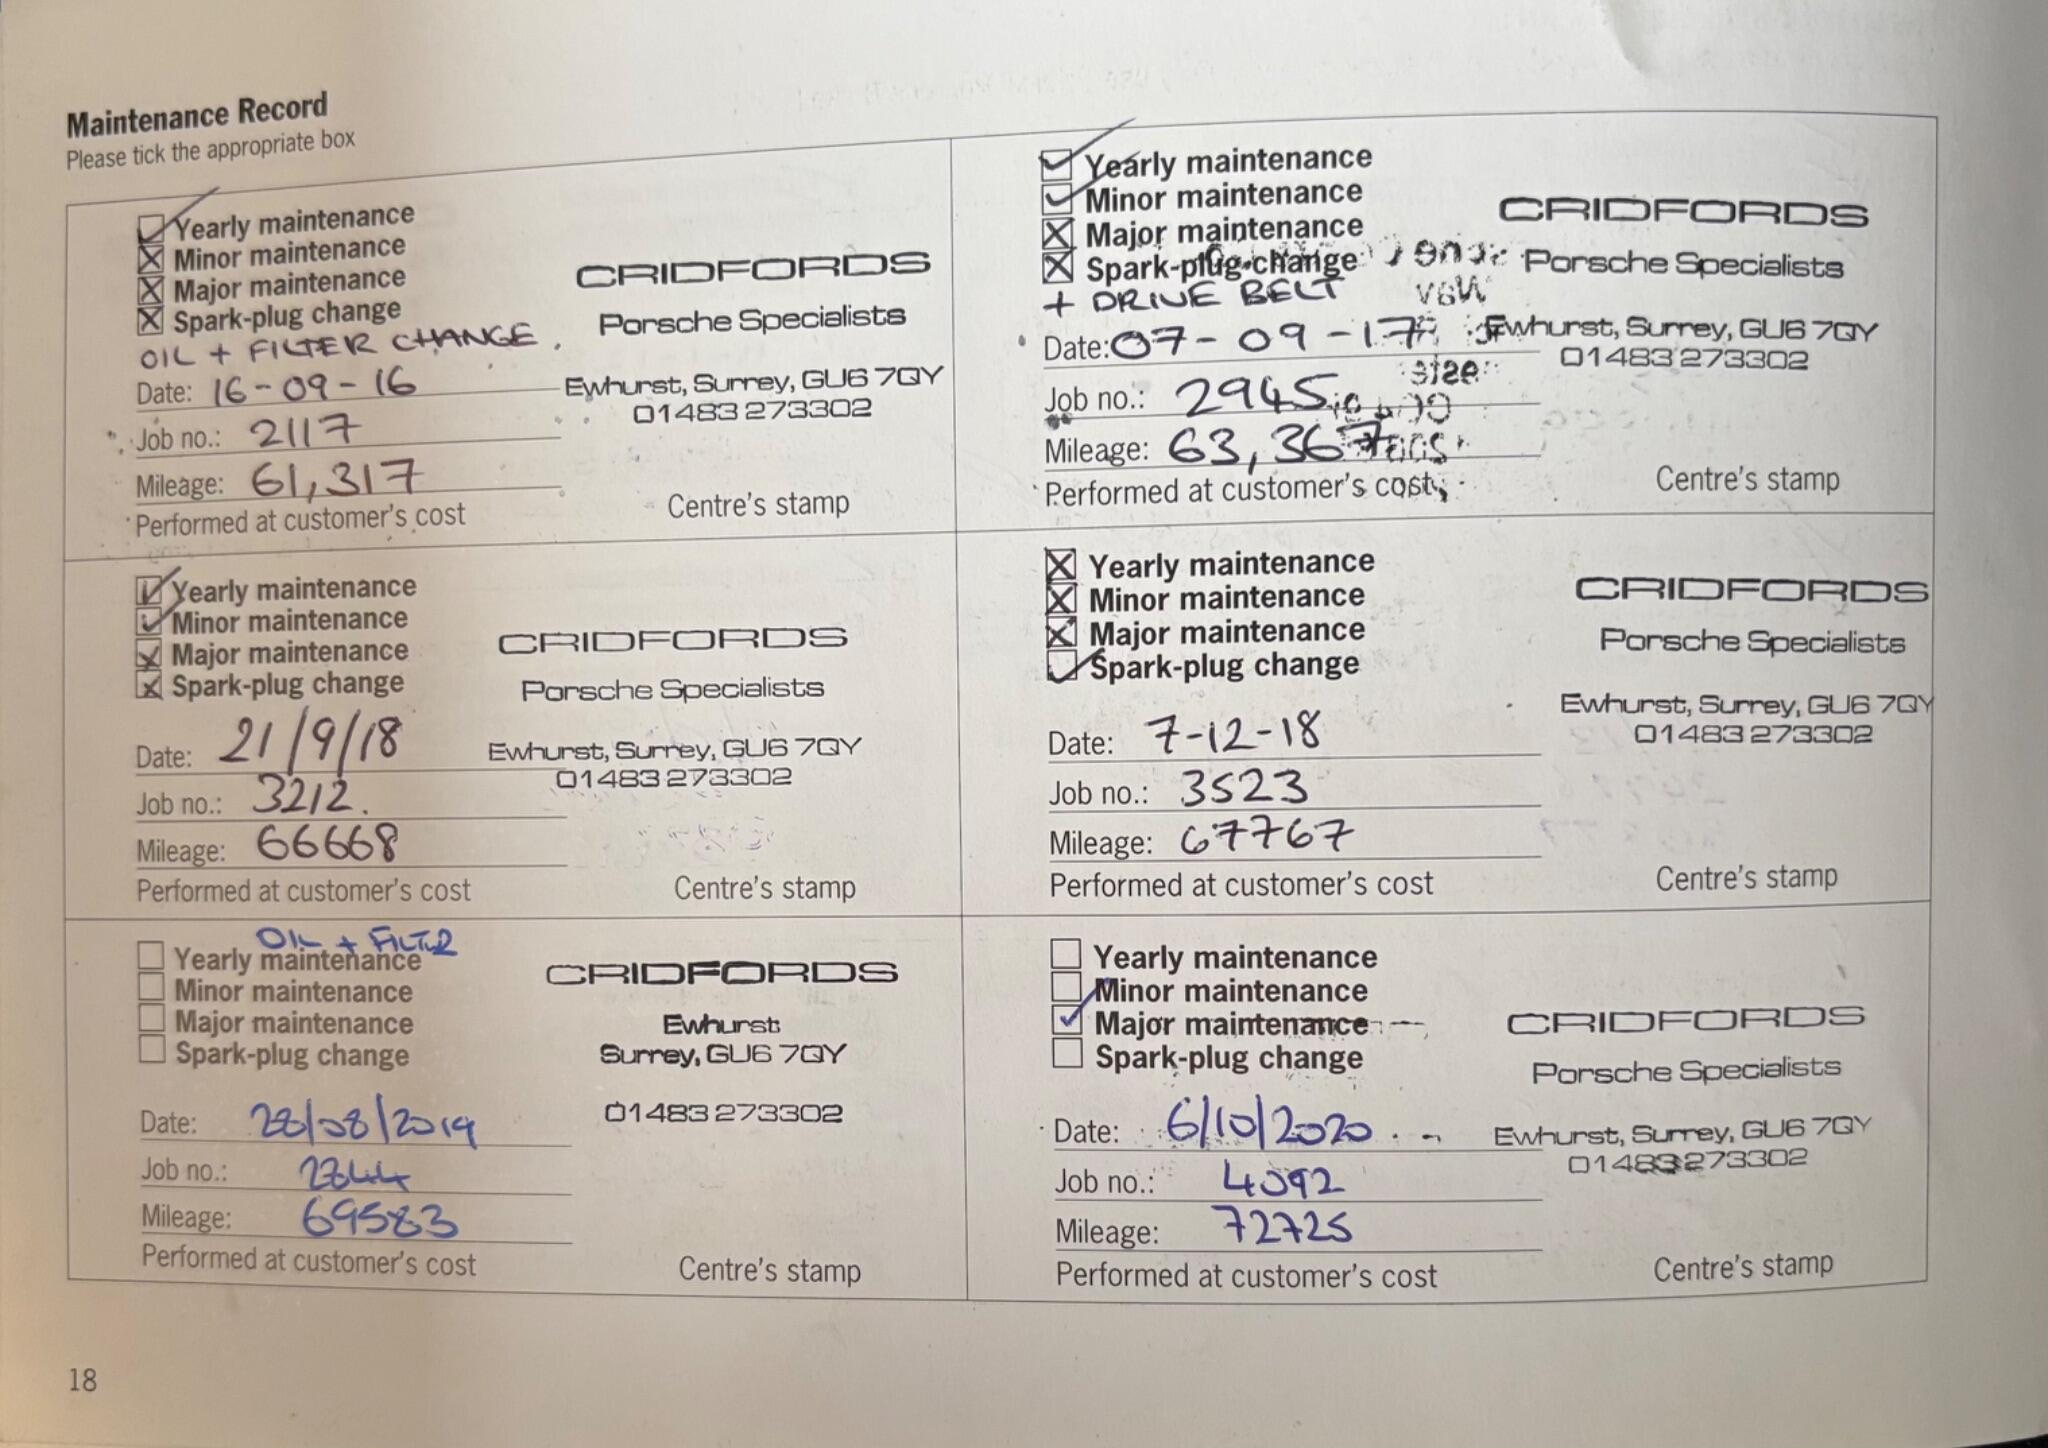 Maintenance Record
Please tick the appropriate box
Yearly maintenance
Minor maintenance
Major maintenance
Spark-plug change
OIL + FILTER CHANGE.
Date: 16-09-16
Job no.: 2117
Mileage: 61,317
Performed at customer's cost
CRIDFORDS
Porsche Specialists
Ewhurst, Surrey, GU6 7QY
01483 273302
Centre's stamp
Yearly maintenance
Minor maintenance
Major maintenance
Spark-plug change
+ DRIVE BELT
Date: 07-09-17
Job no.: 2945
Mileage: 63,367
Performed at customer's cost
CRIDFORDS
Porsche Specialists
Ewhurst, Surrey, GU6 7QY
01483 273302
Centre's stamp
Yearly maintenance
Minor maintenance
Major maintenance
Spark-plug change
Date: 21/9/18
Job no.: 3212.
Mileage: 66668
Performed at customer's cost
CRIDFORDS
Porsche Specialists
Ewhurst, Surrey, GU6 7QY
01483 273302
Centre's stamp
Yearly maintenance
Minor maintenance
Major maintenance
Spark-plug change
Date: 7-12-18
Job no.: 3523
Mileage: 67767
Performed at customer's cost
CRIDFORDS
Porsche Specialists
Ewhurst, Surrey, GU6 7QY
01483 273302
Centre's stamp
OIL + FILTER
Yearly maintenance
Minor maintenance
Major maintenance
Spark-plug change
Date: 28/08/2019
Job no.:
Mileage: 69583
Performed at customer's cost
CRIDFORDS
Ewhurst
Surrey, GU6 7QY
01483 273302
Centre's stamp
Yearly maintenance
Minor maintenance
Major maintenance
Spark-plug change
Date: 6/10/2020
Job no.: 4092
Mileage: 72725
Performed at customer's cost
CRIDFORDS
Porsche Specialists
Ewhurst, Surrey, GU6 7QY
01483 273302
Centre's stamp
18